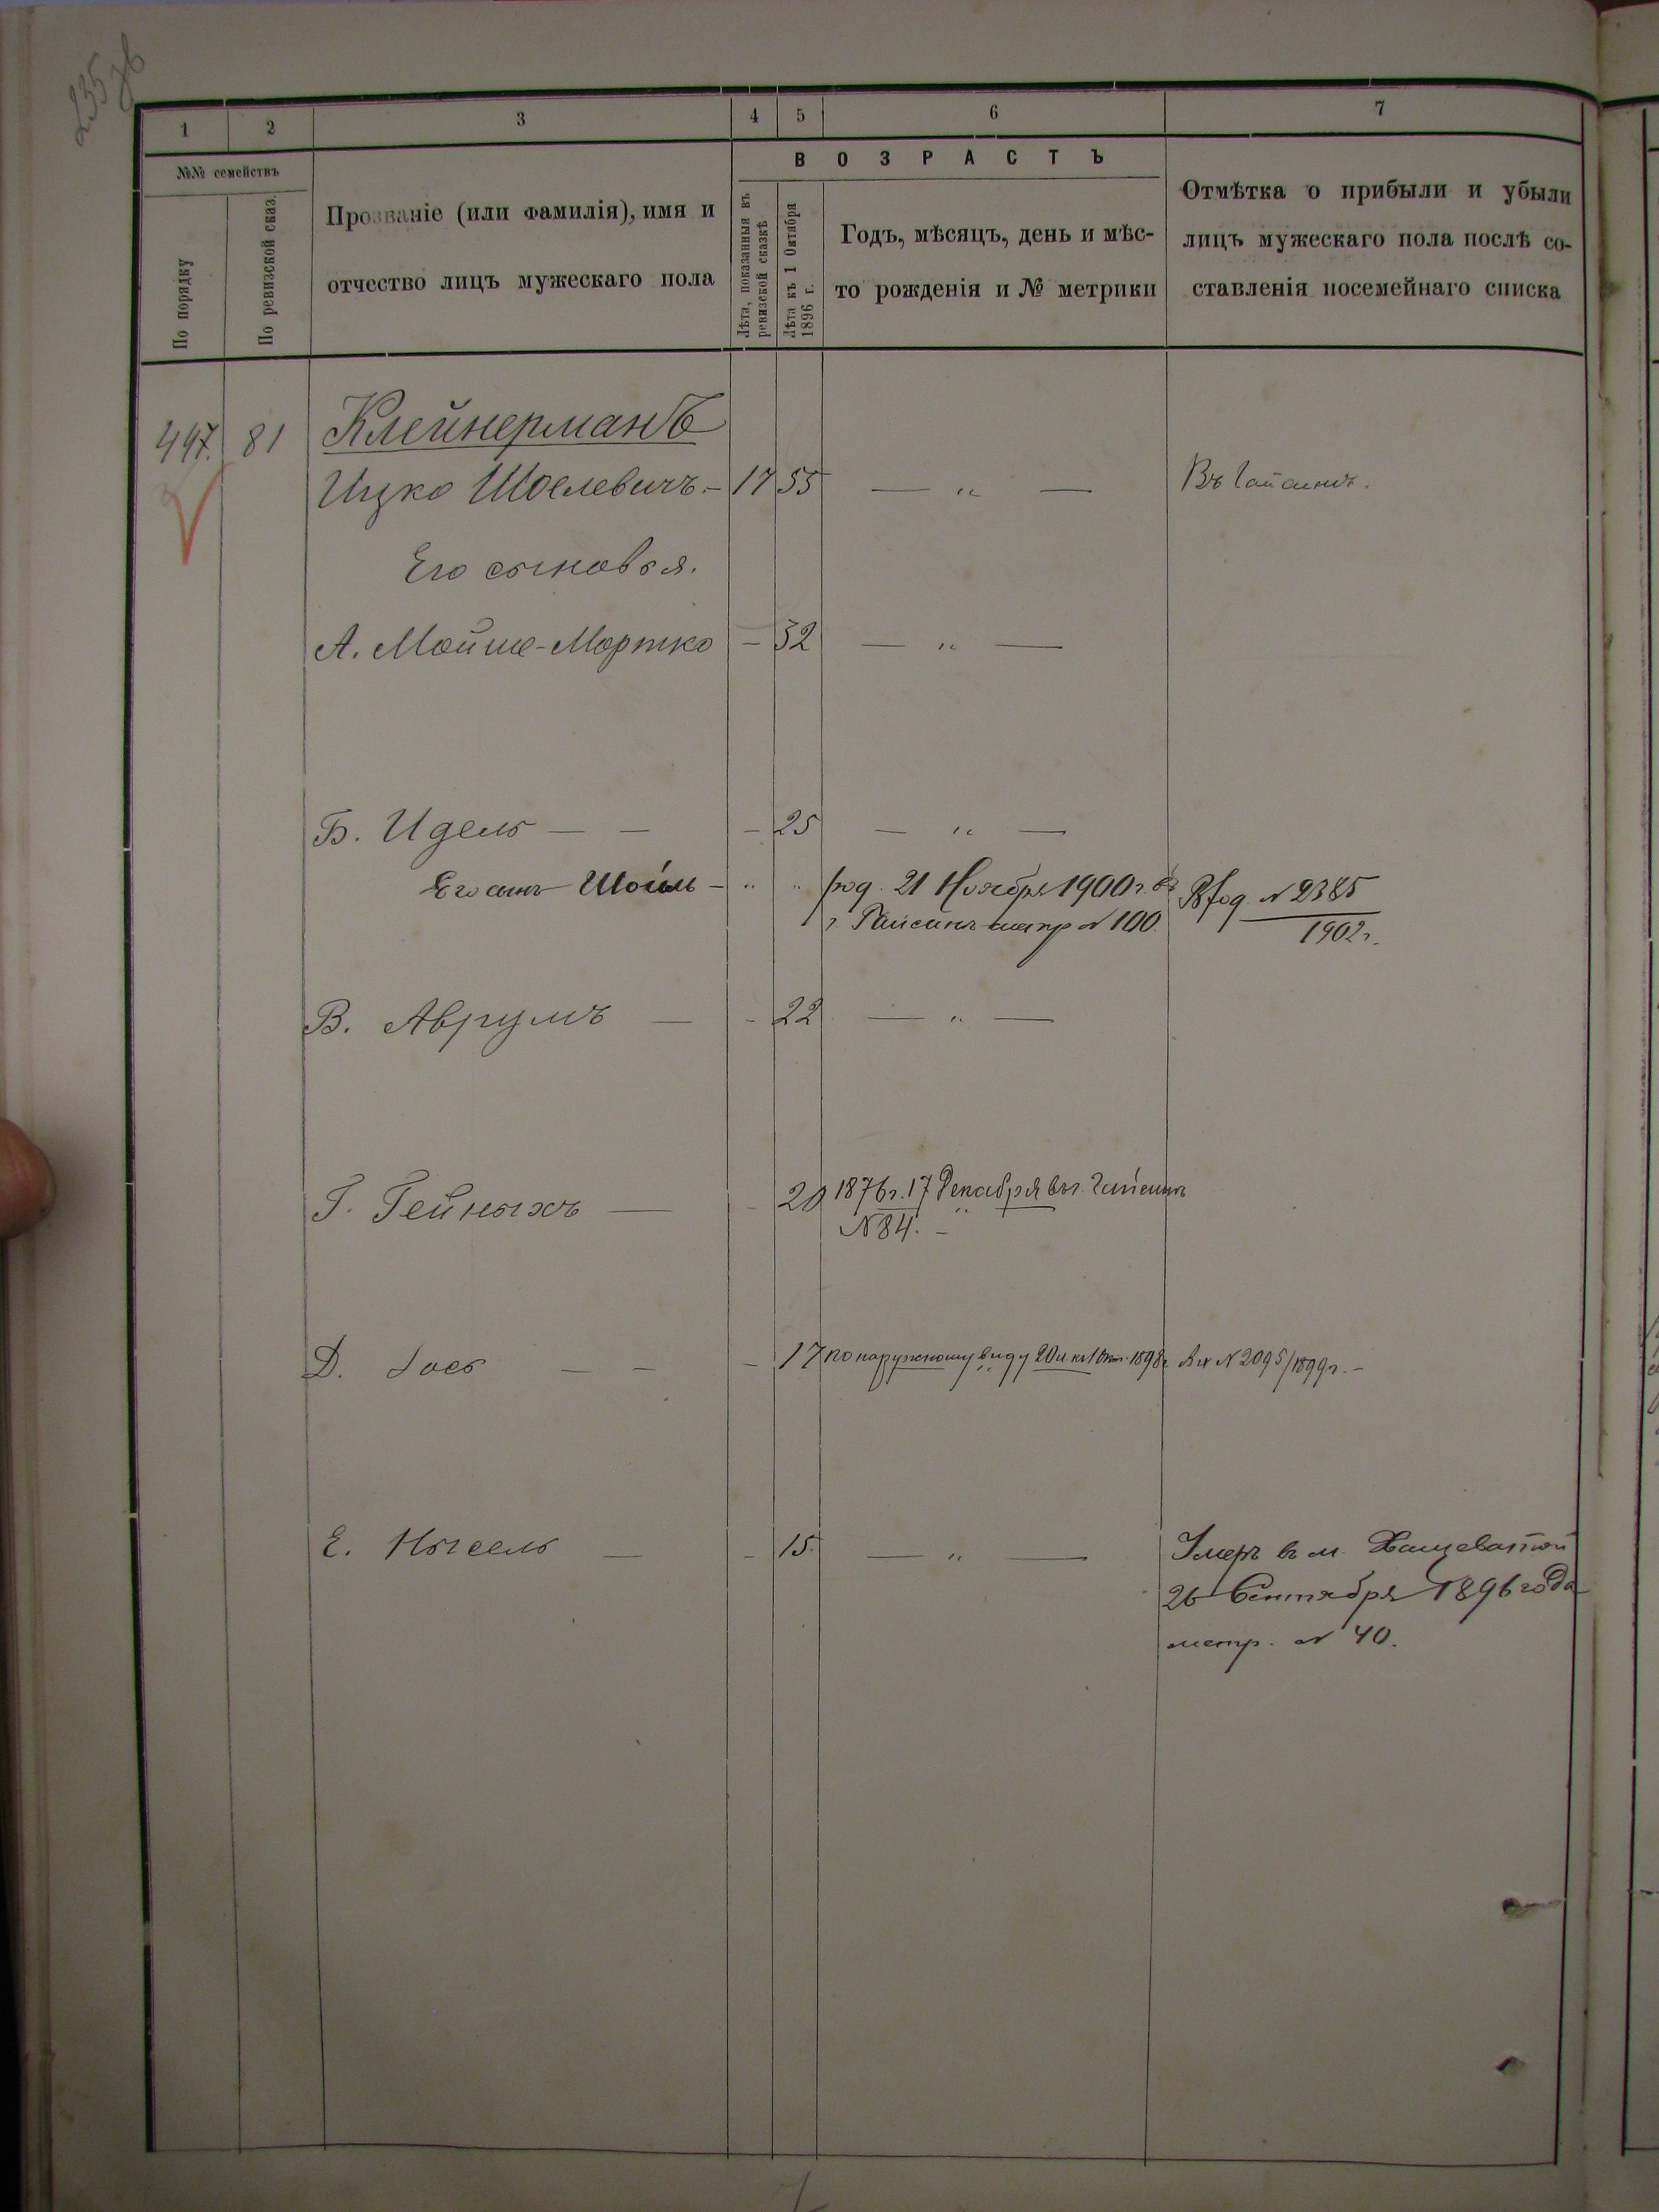 235 об
1 2 3 4 5 6 7
№№ семействъ
По порядку
По ревизской сказ.
Прозваніе (или фамилія), имя и
отчество лицъ мужескаго пола
ВОЗРАСТЪ
Лѣта, показанныя въ
ревизской сказкѣ
Лѣта къ 1 Октября
1896 г.
Годъ, мѣсяцъ, день и мѣс-
то рожденія и № метрики
Отмѣтка о прибыли и убыли
лицъ мужескаго пола послѣ со-
ставленія посемейнаго списка
497. 81 Клейнерманъ
Ицко Шоелевичъ - 17 55 — " — Въ Гайсинѣ.
Его сыновья.
А. Мойше-Мортко - 32 — " —
Б. Идель — — - 25 — " —
Его сынъ Шоіль - " " род. 21 Ноября 1900 г. въ
г. Гайсинѣ метр № 100.
№ 2385
1902 г.
В. Аврумъ — - 22 — " —
Г. Гейныхъ — - 20 1876 г. 17 Декабря въ г. Гайсинѣ
№ 84. -
Д. Іось — — - 17 по наружному виду 20 л. къ 1 Окт. 1898 г. Вх № 2095/1899 г. -
Е. Нысель — - 15. — " — Умеръ въ м. Хащеватой
26 Сентября 1896 года
метр. № 40.